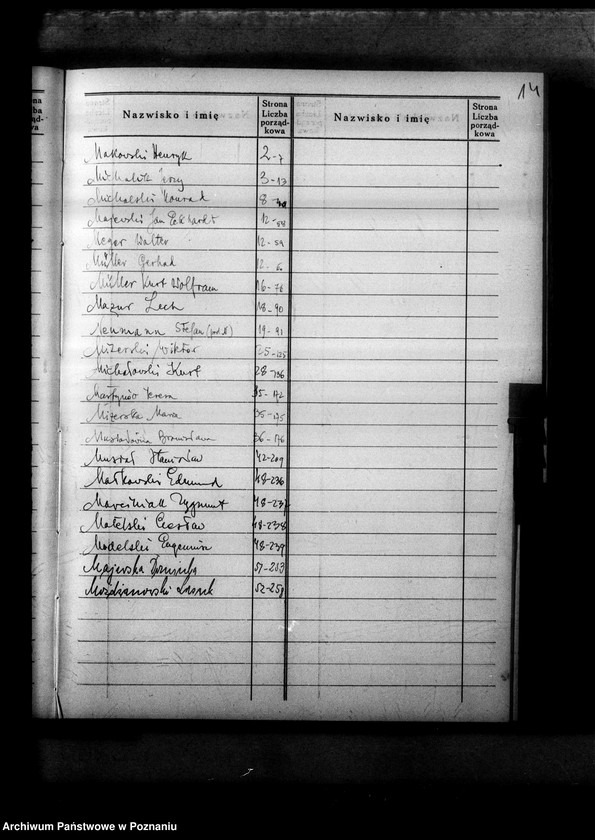 14
Nazwisko i imię
Strona
Liczba
porząd-
kowa
Nazwisko i imię
Strona
Liczba
porząd-
kowa
Makowski Henryk 2-7
Michalik Jerzy 3-13
Michalski Konrad 8-
Majewski Jan Ekhardt 12-58
Meger Walter 12-59
Müller Gerhad 12-
Müller Kurt Wolfram 16-78
Mazur Lech 18-90
Neumann Stefan 19-91
Mizerski Wiktor 25-125
Michałowski Kurt 28-136
Martynów Teresa 35-172
Mizerska Maria 35-175
Bronisława 36-176
Musiał Stanisław 42-209
Małkowski Edmund 48-236
Marciniak Zygmunt 48-237
Czesław 48-238
Modelski Eugeniusz 48-239
Majewska 51-253
52-258
Archiwum Państwowe w Poznaniu